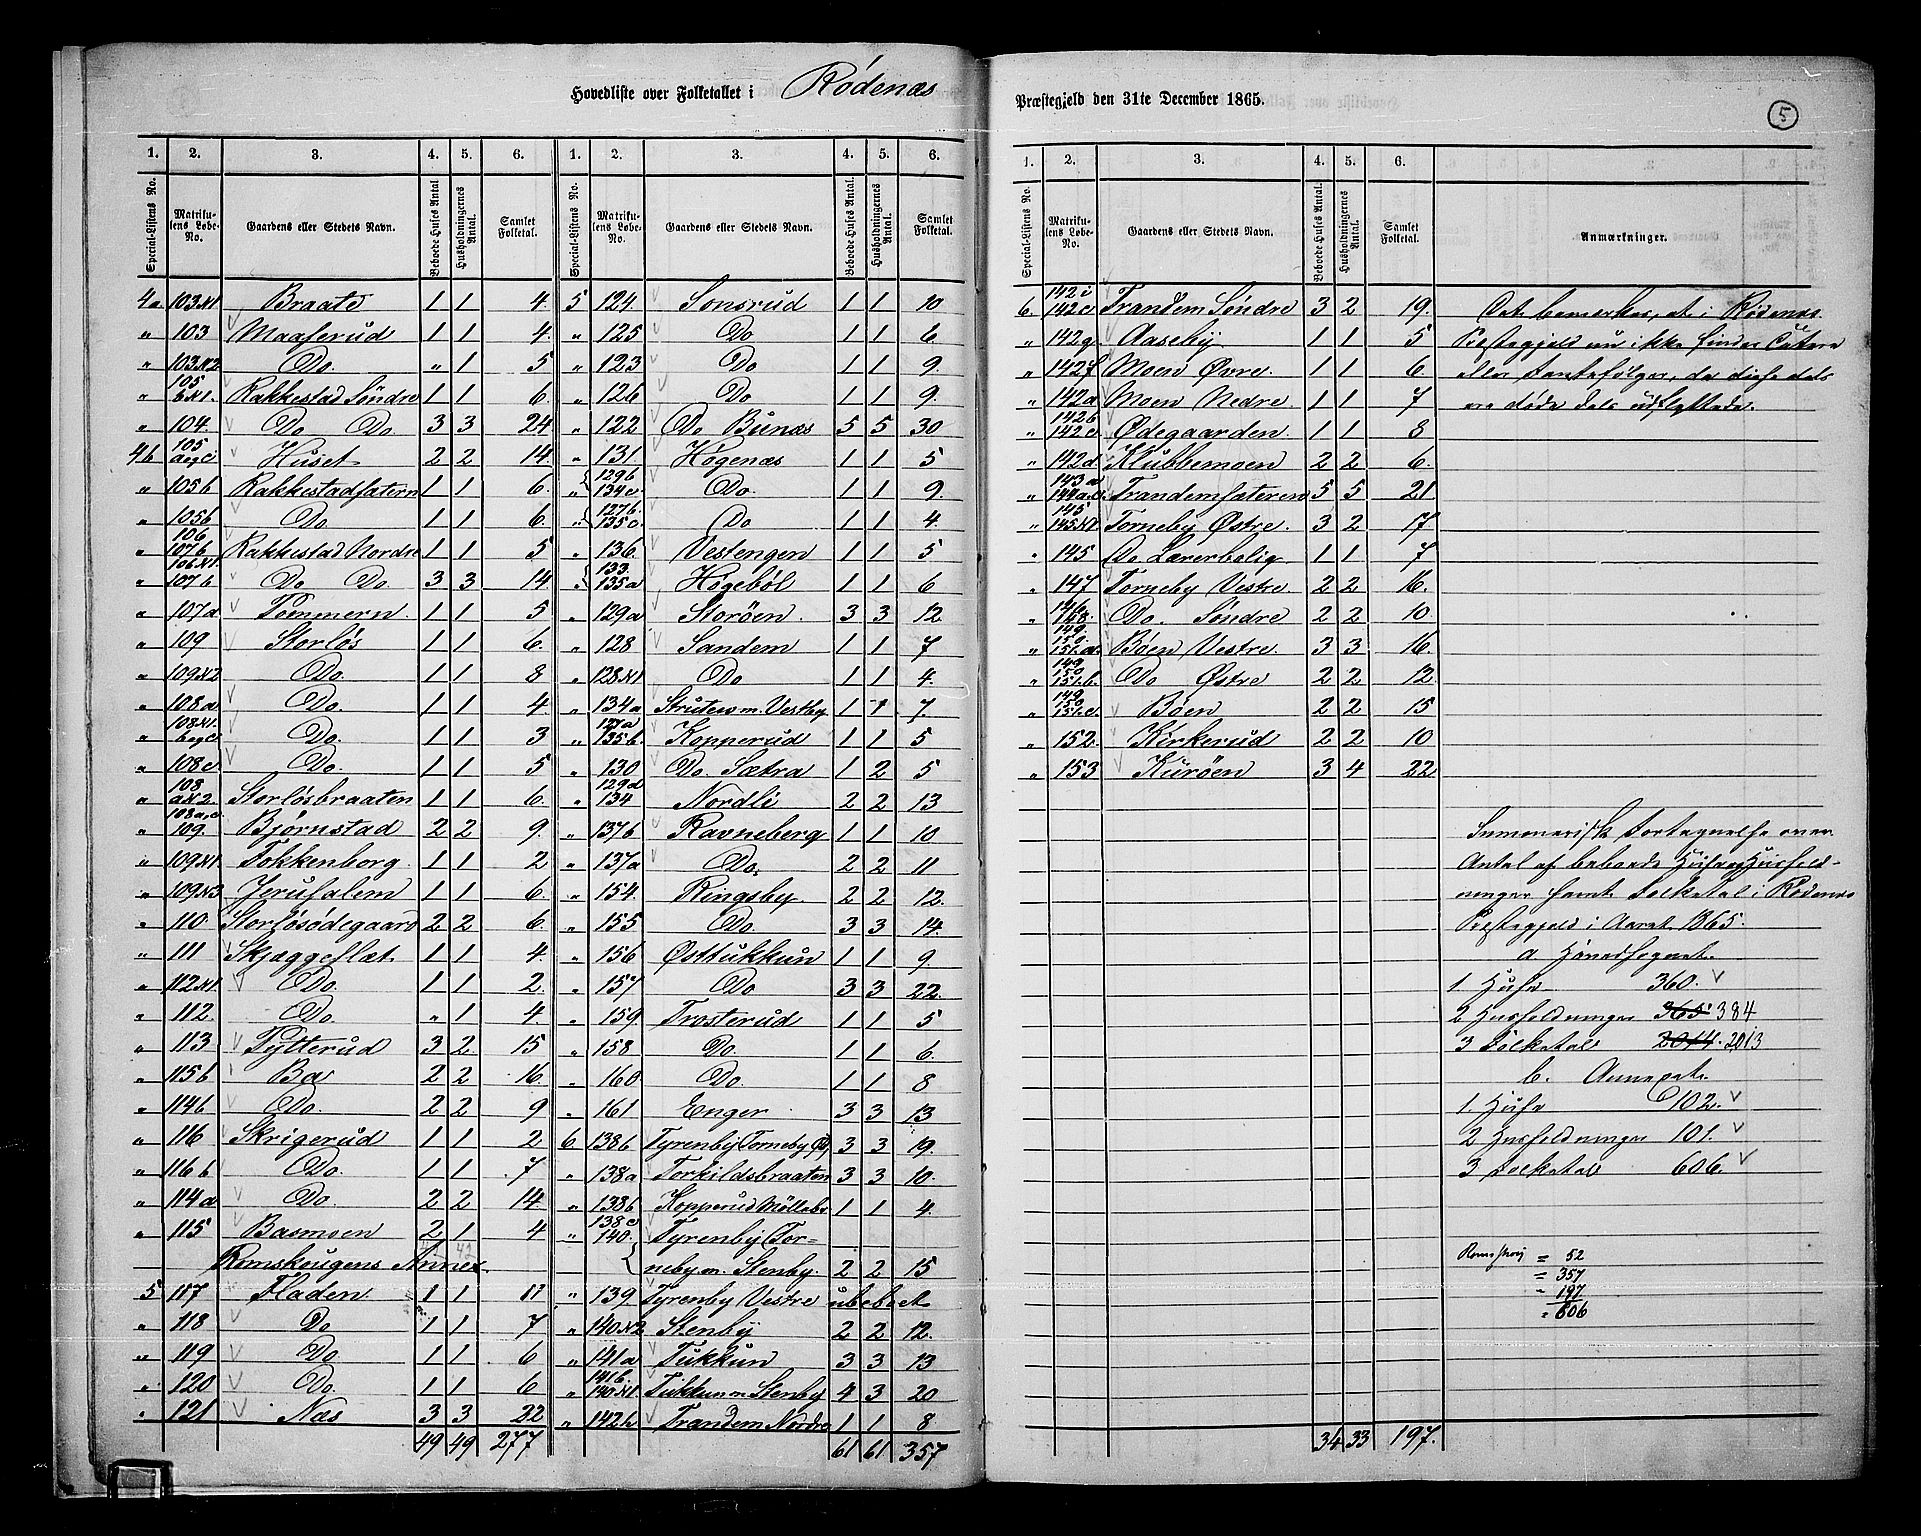 Hovedliste over Folketallet i Rødenæs Præstegjeld den 31te December 1865.
5
1. 2. 3. 4. 5. 6. 1. 2. 3. 4. 5. 6.
Special-Listens No. Matrikulens Løbe-No. Gaardens eller Stedets Navn. Beboede Huses Antal Husholdningernes Antal. Samlet Folketal. Special-Listens No. Matrikulens Løbe-No. Gaardens eller Stedets Navn. Beboede Huses Antal. Husholdningernes Antal. Samlet Folketal.
4a 103N1 Braate 1 1 4.
" 103 Maaserud 1 1 4.
" 103N2 Do. " 1 5
" 105 bN1. Rakkestad Søndre 1 1 6.
" 104. Do Do. 3 3 24
4b 105 aogc Huset 2 2 14.
" 105b Rakkestadsætern 1 1 6.
" 105b Do. 1 1 6.
" 106 107b Rakkestad Nordre 1 1 5
" 106N1. 107b Do Do. 3 3 14
" 107a Pommern. 1 1 5
" 109 Storløs 1 1 6.
" 109N2 Do. 1 1 8
" 108a Do. 1 1 4
" 108N1. bogc Do. 1 1 3
" 108c Do. 1 1 5
" 108 aN2. Storløsbraaten 1 1 6.
" 108a,c 109. Bjørnstad 2 2 9.
" 109N1 Tokkenborg. 1 1 2
" 109N3 Jerusalem 1 1 6.
" 110 Storløsødegaard 2 2 6.
" 111 Skjæggeflæt. 1 1 4.
" 112N1. Do. 1 1 2.
" 112. Do. " 1 4.
" 113 Tytterud 3 2 15
" 115b Ba 2 2 16.
" 114b Do. 2 2 9
" 116 Skrigerud 1 1 2
" 116b Do. 1 1 7
" 114a Do. 2 2 14
" 115 Basmoen 2 1 4
Romskougens Annex. 42
5 117 Fladen. 1 1 11
" 118 Do 1 1 7
" 119 Do. 1 1 6
" 120 Do. 1 1 6
" 121 Næs 3 3 22
49 49 277
5 124. Sonsrud 1 1 10
" 125 Do 1 1 6.
" 123 Do 1 1 9.
" 126 Do 1 1 9.
" 122 Do Bunæs 5 5 30
" 131. Høgenæs 1 1 5
" 129b 134c Do. 1 1 9.
" 127b. 135c. Do 1 1 4.
" 136. Vestengen 1 1 5
" 133. 135a Høgeböl 1 1 6
" 129a Storöen. 3 3 12
" 128 Sandem 1 1 7
" 128N1 Do 1 1 4.
" 134a Struters m. Vestby 1 1 7.
" 127a 135b. Kopperud 1 1 5
" 130 Do. Sætra 1 2 5
" 129d 134 Nordli 2 2 13
" 137b Ravneberg 1 1 10
" 137a Do. 2 2 11
" 154. Ringsby 2 2 12.
" 155 Do. 3 3 14.
" 156 Østtukkun 1 1 9.
" 157 Do 3 3 22.
" 159 Trosterud 1 1 5
" 158 Do. 1 1 6.
" 160 Do. 1 1 8
" 161 Enger 3 3 13
6 138b Tyrenby Torneby 3 3 19.
" 138a Torkildsbraaten 3 3 10.
" 138b Kopperud Möllebr 1 1 4.
" 138c 140. Tyrenby (Tor=
neby m. Stenby. 2 2 15
" 139 Tyrenby Vestre ubeboet
" 140N2 Stenby 2 2 12.
" 141a Tukkun 3 3 13
" 141b. 140N1. Tukkun m Stenby 4 3 20
" 142h Trandem Nordre 1 1 8
61 61 357
1. 2. 3. 4. 5. 6.
Special-Listens No. Matrikulens Løbe-No. Gaardens eller Stedets Navn. Beboede Huses Antal. Husholdningernes Antal. Samlet Folketal. Anmærkninger.
6. 142i 142e Trandem Søndre 3 2 19.
" 142g. Aaseby 1 1 5
" 142f Moen Øvre. 1 1 6
" 142a Moen Nedre. 1 1 7
" 142b 142c Ødegaarden. 1 1 8
" 142d. Klubbemoen 2 2 6.
" 143a 144a,c. Trandemsæteren 5 5 21
" 145 145N1 Torneby Østre. 3 2 17
" 145 Do Lærerbolig 1 1 7
" 147 Torneby Vestre. 2 2 16.
" 146 148. Do. Søndre 2 2 10
" 149 150. 151.a. Bøen Vestre. 3 3 16.
" 149 150 151.b. Do Østre 2 2 12
" 149 150 151.c. Bøen 2 2 15
" 152. Kirkerud 2 2 10
" 153 Kuröen 3 4 22
34 33 197.
Det bemærkes, at i Rødenæs
Præstegjeld nu ikke findes Qvæner
eller Tartefølger, da disse dels
ere døde dels udflyttede.
Summarisk Fortegnelse over
Antal af beboede Huse og Hushold-
ninger samt Folketal i Rødenæs
Præstegjeld i Aaret 1865.
a Hovedsognet.
1 Huse 360.
2 Husholdninger 365 384
3 Folketal 2014. 2013
b. Annexet.
1 Huse 102.
2 Husholdninger 101.
3 Folketal 606.
Romskog = 52
= 357
" 197
= 606